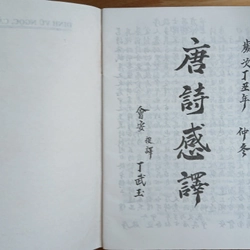 歲次丁丑年 仲冬
唐詩感譯
會安 譯 丁武玉